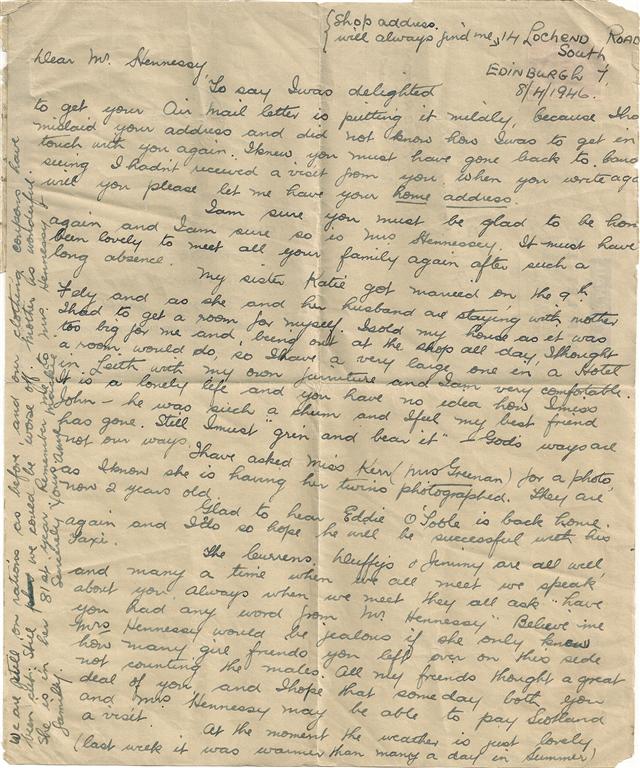 {Shop address.
will always find me, 14 Lochend Road
South
Edinburgh 7.
8/4/1946.
Dear Mr. Hennessy,
To say I was delighted
to get your Air Mail letter is putting it mildly, because I had
mislaid your address and did not know how I was to get in
touch with you again. I knew you must have gone back to
seeing I hadn't received a visit from you when you write again
will you please let me have your home address.
I am sure you must be glad to be home
again and I am sure so is Mrs Hennessy. It must have
been lovely to meet all your family again after such a
long absence.
My sister Katie got married on the 9th
Feby and as she and her husband are staying with mother
I had to get a room for myself. I sold my house as it was
too big for me and, being out at the shop all day, I thought
a room would do, so I have a very large one in a Hotel
in Leith with my own furniture and I am very comfortable.
It is a lonely life and you have no idea how I miss
John - he was such a chum and I feel my best friend
has gone. Still I must "grin and bear it" - God's ways are
not our ways.
I have asked Miss Kerr (Mrs Greenan) for a photo,
as I know she is having her twins photographed. They are
now 2 years old.
Glad to hear Eddie O'Toole is back home
again and I do so hope he will be successful with his
Taxi.
The Currens, Duffy's & Jenny are all well
and many a time when we all meet we speak
about you. Always when we meet they all ask "have
you had any word from Mr. Hennessy" Believe me
Mrs Hennessy would be jealous if she only knew
how many girl friends you left over on this side
not counting the males. All my friends thought a great
deal of you and I hope that some day both you
and Mrs Hennessy may be able to pay Scotland
a visit.
At the moment the weather is just lovely
(last week it was warmer than many a day in Summer)
We are still on rations as before, and our clothing coupons have
been cut. Still we could be worse off. Mother is wonderful.
She is in her 81st year. Remember me to Mrs. Hennessy &
family.
Sincerely Yours